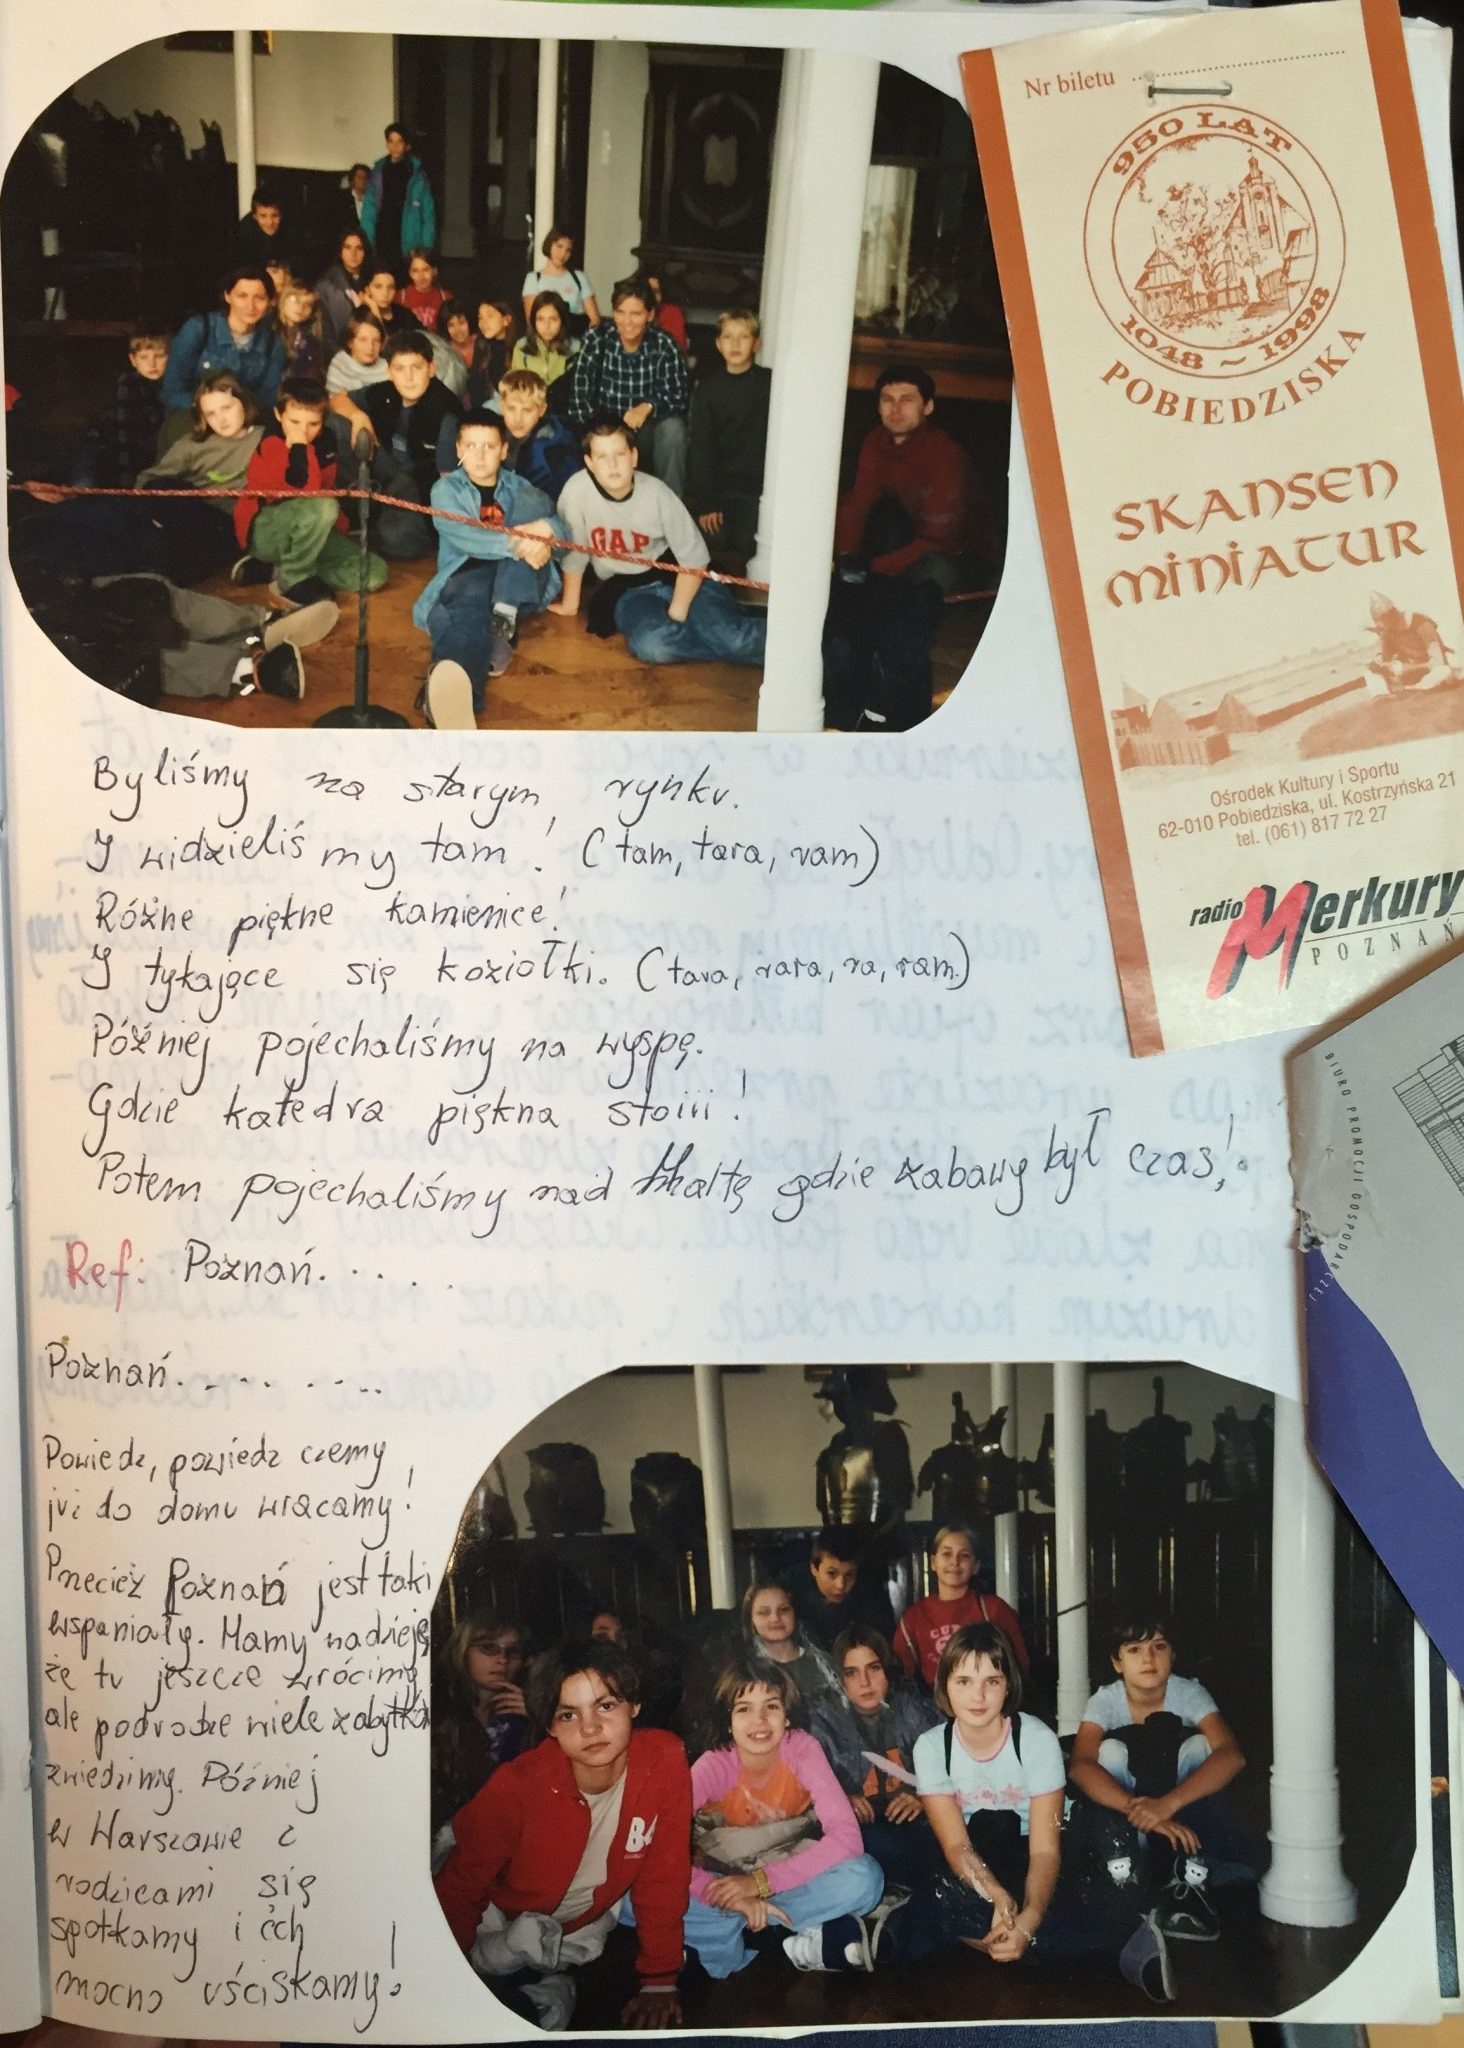 Nr biletu
950 LAT
1048 ~ 1998
POBIEDZISKA
SKANSEN
MINIATUR
Ośrodek Kultury i Sportu
62-010 Pobiedziska, ul. Kostrzyńska 21
tel. (061) 817 72 27
radio Merkury
POZNAŃ
BIURO PROMOCJI GOSPODARCZEJ
GAP
Byliśmy na starym rynku.
I widzieliśmy tam! (tam, tara, ram)
Różne piękne kamienice!
I tykające się koziołki. (tara, rara, ra, ram.)
Później pojechaliśmy na wyspę.
Gdzie katedra piękna stoiii!
Potem pojechaliśmy nad Maltę gdzie zabawy był czas!
Ref: Poznań.....
Poznań.... ....
Powiedz, powiedz czemy
już do domu wracamy!
Przecież Poznań jest taki
wspaniały. Mamy nadzieję
że tu jeszcze wrócimy
ale po drodze wiele zabytków
zwiedzimy. Później
w Warszawie z
rodzicami się
spotkamy i ich
mocno uściskamy!